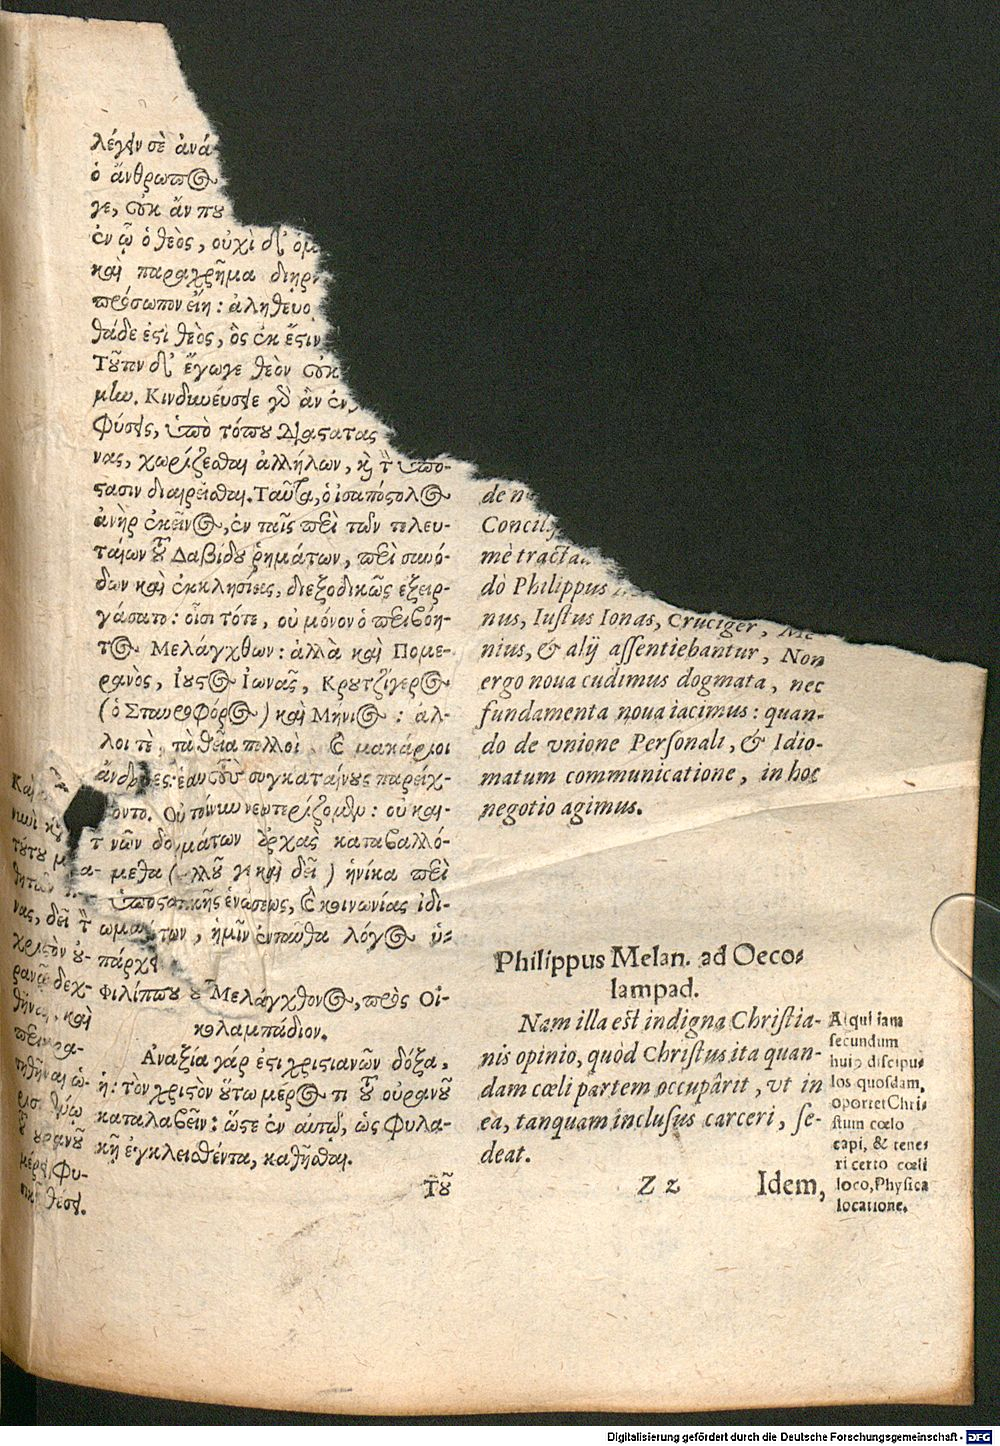 λέγειν σὲ ἀνά-
ὁ ἄνθρωπος
γε, οὐκ ἄν που
ἐν ᾧ ὁ θεὸς, οὐχὶ δ' ὁμ
καὶ παραχρῆμα διηρ
πρόσωπον εἴη: ἀληθευο
θάδε ἐστὶ θεὸς, ὃς ἐκ ἔστιν
Τοῦτον δ' ἔγωγε θεὸν οὐκ
μην. Κινδυνεύσειε γὸ ἂν ἐν
Φύσεις, ὑπὸ τόπου
νας, χωρίζεσθαι ἀλλήλων, καὶ τ ὑπό-
στασιν διαιρεῖσθαι. Ταῦτα, ὁ ἰσαπόστολος
ἀνὴρ ἐκεῖνος, ἐν ταῖς περὶ τῶν τελευ-
ταίων τοῦ Δαβίδου ῥημάτων, περὶ συνό-
δων καὶ ἐκκλησίας, διεξοδικῶς ἐξειρ-
γάσατο: οἷσι τότε, οὐ μόνον ὁ περιβόη-
τος Μελάγχθων: ἀλλὰ καὶ Πομε-
ρανὸς, Ἰοῦστος Ἰωνᾶς, Κρουτζίγερος
(ὁ Σταυροφόρος) καὶ Μήνιος: ἄλ-
λοι τὲ, πολλοὶ καὶ μακάριοι
ἄνδρες: ἑαυτοὺς συγκαταίνους παρείχ-
οντο. Οὐ τοίνυν νεωτερίζομεν: οὐ και-
νῶν δογμάτων ἀρχὰς καταβαλλό-
μεθα (ἀλλ' οὔ γε καὶ δεῖ) ἡνίκα περὶ
ὑποστατικῆς ἑνώσεως, καὶ κοινωνίας ἰδι-
ωμάτων, ἡμῖν ἐνταῦθα λόγος ὑ-
πάρχει
Φιλίππου τοῦ Μελάγχθονος, πρὸς Οἰ-
κολαμπάδιον.
Ἀναξία γάρ ἐστι χριστιανῶν δόξα,
ἡ: τὸν χριστὸν οὕτω μέρος τι τοῦ οὐρανοῦ
καταλαβεῖν: ὥστε ἐν αὐτῷ, ὡς φυλα-
κῇ ἐγκλεισθέντα, καθῆσθαι.
Τοῦ
νας, δεῖ τ
χριστὸν οὐ-
ρανὸν δεχ-
θῆναι, καὶ
τοῦ οὐρανοῦ
Φυ-
θέσει.
de n
Concil
mè tracta
dò Philippus
nus, Iustus Ionas, Cruciger, Me
nius, & alij assentiebantur, Non
ergo noua cudimus dogmata, nec
fundamenta noua iacimus: quan-
do de vnione Personali, & Idio-
matum communicatione, in hoc
negotio agimus.
Philippus Melan. ad Oeco-
lampad.
Nam illa est indigna Christia-
nis opinio, quòd Christus ita quan-
dam cœli partem occupârit, vt in
ea, tanquam inclusus carceri, se-
deat.
Z z
Idem,
At qui iam
secundum
huiꝰ discipu-
los quosdam,
oportet Chri-
stum cœlo
capi, & tene-
ri certo cœli
loco, Physica
locatione.
Digitalisierung gefördert durch die Deutsche Forschungsgemeinschaft - DFG